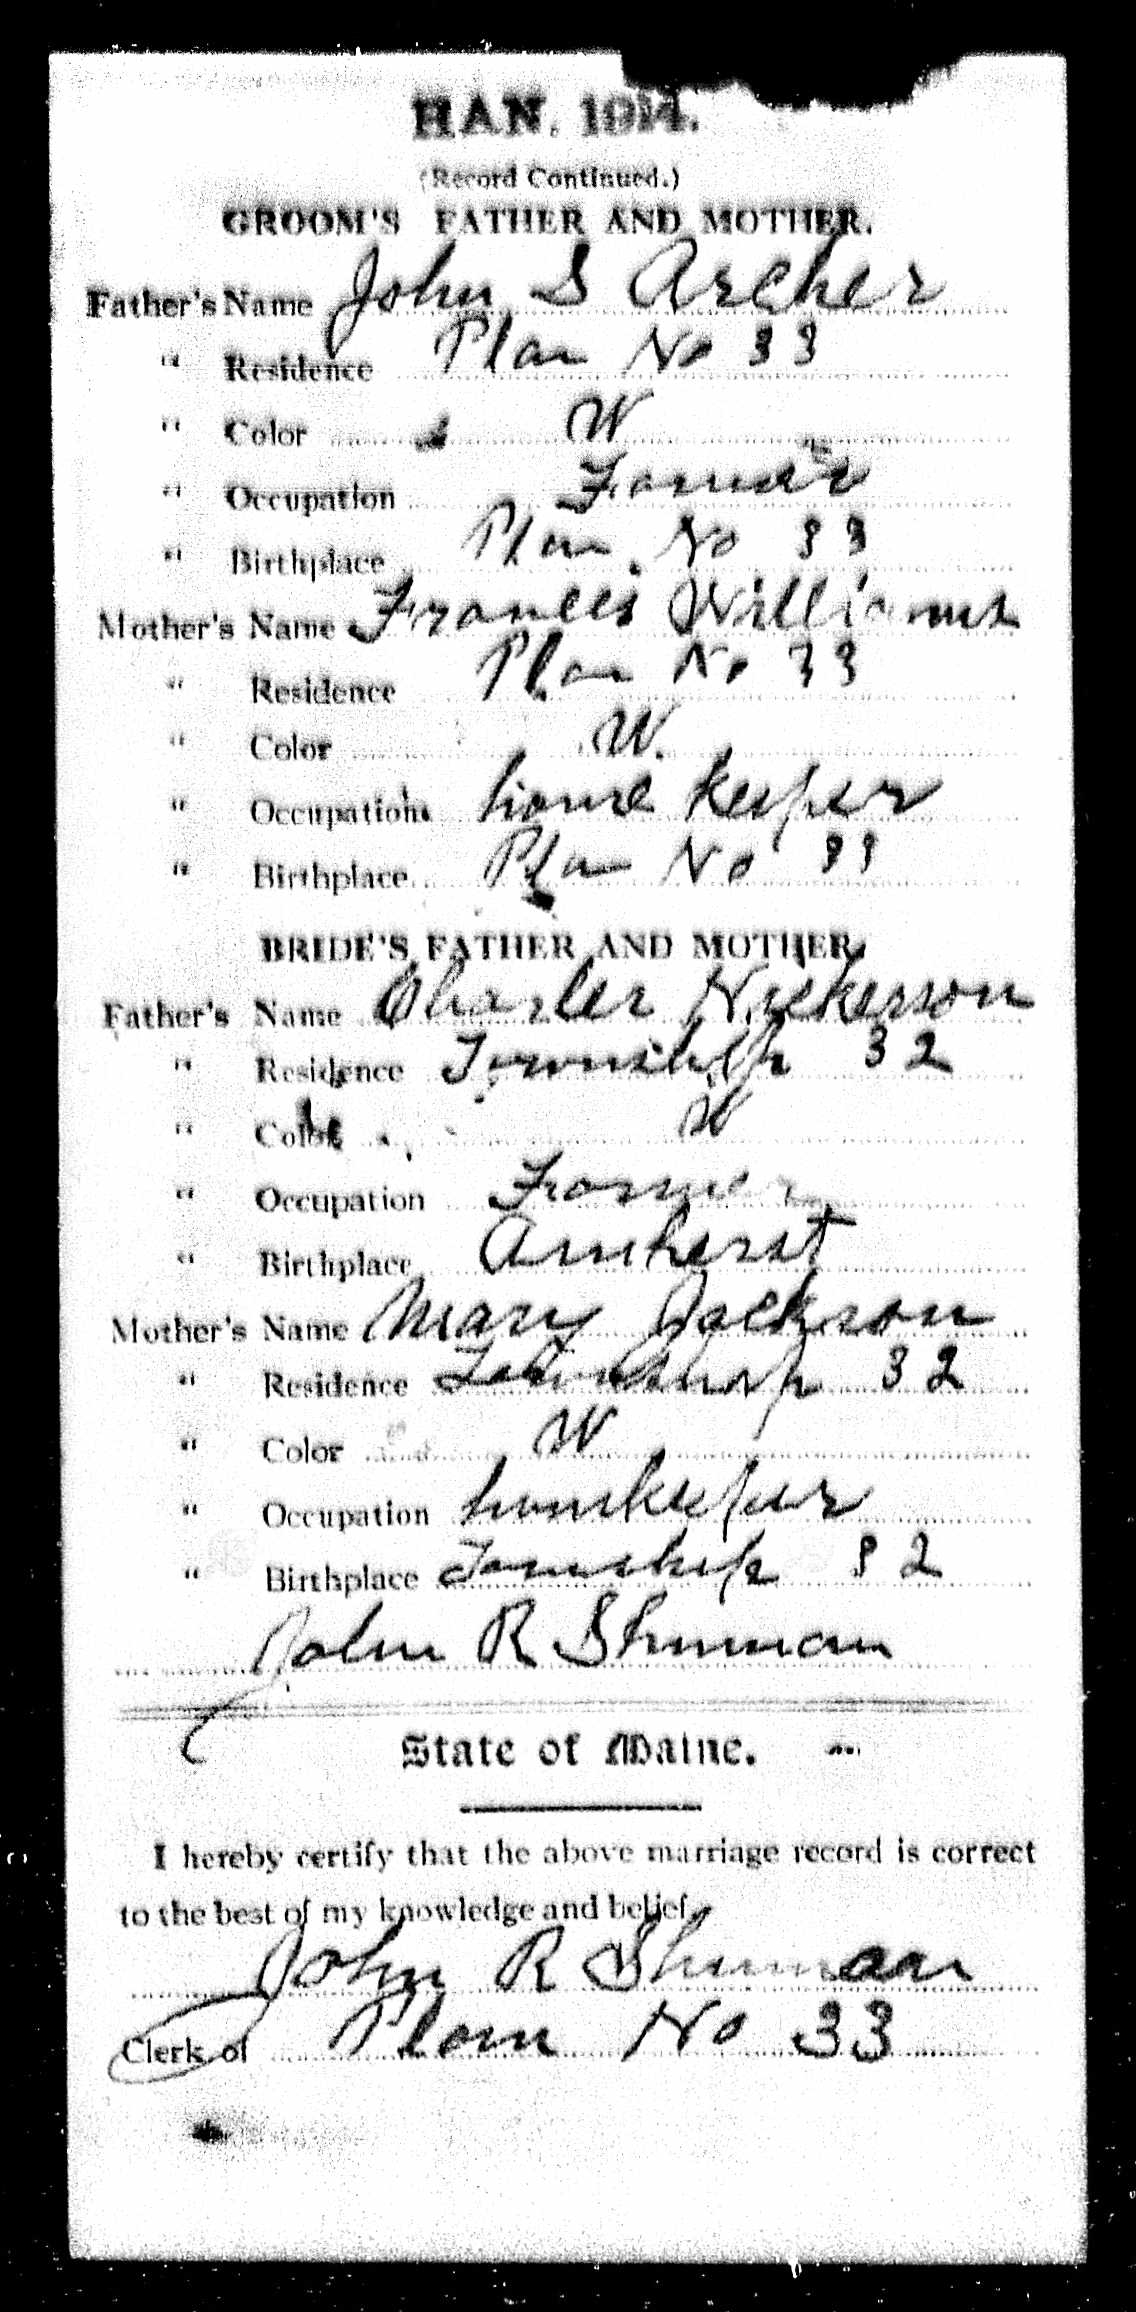 HAN, 1914.
(Record Continued.)
GROOM'S FATHER AND MOTHER.
Father's Name John S Archer
" Residence Plan No 33
" Color W
" Occupation Farmer
" Birthplace Plan No 33
Mother's Name Frances Williams
" Residence Plan No 33
" Color W.
" Occupation house keeper
" Birthplace Plan No 33
BRIDE'S FATHER AND MOTHER.
Father's Name Charles Nickerson
" Residence Township 32
" Color W
" Occupation Farmer
" Birthplace Amherst
Mother's Name Mary Jackson
" Residence Township 32
" Color W
" Occupation housekeper
" Birthplace Township 32
John R Shuman
State of Maine.
I hereby certify that the above marriage record is correct
to the best of my knowledge and belief.
John R Shuman
Clerk of Plan No 33